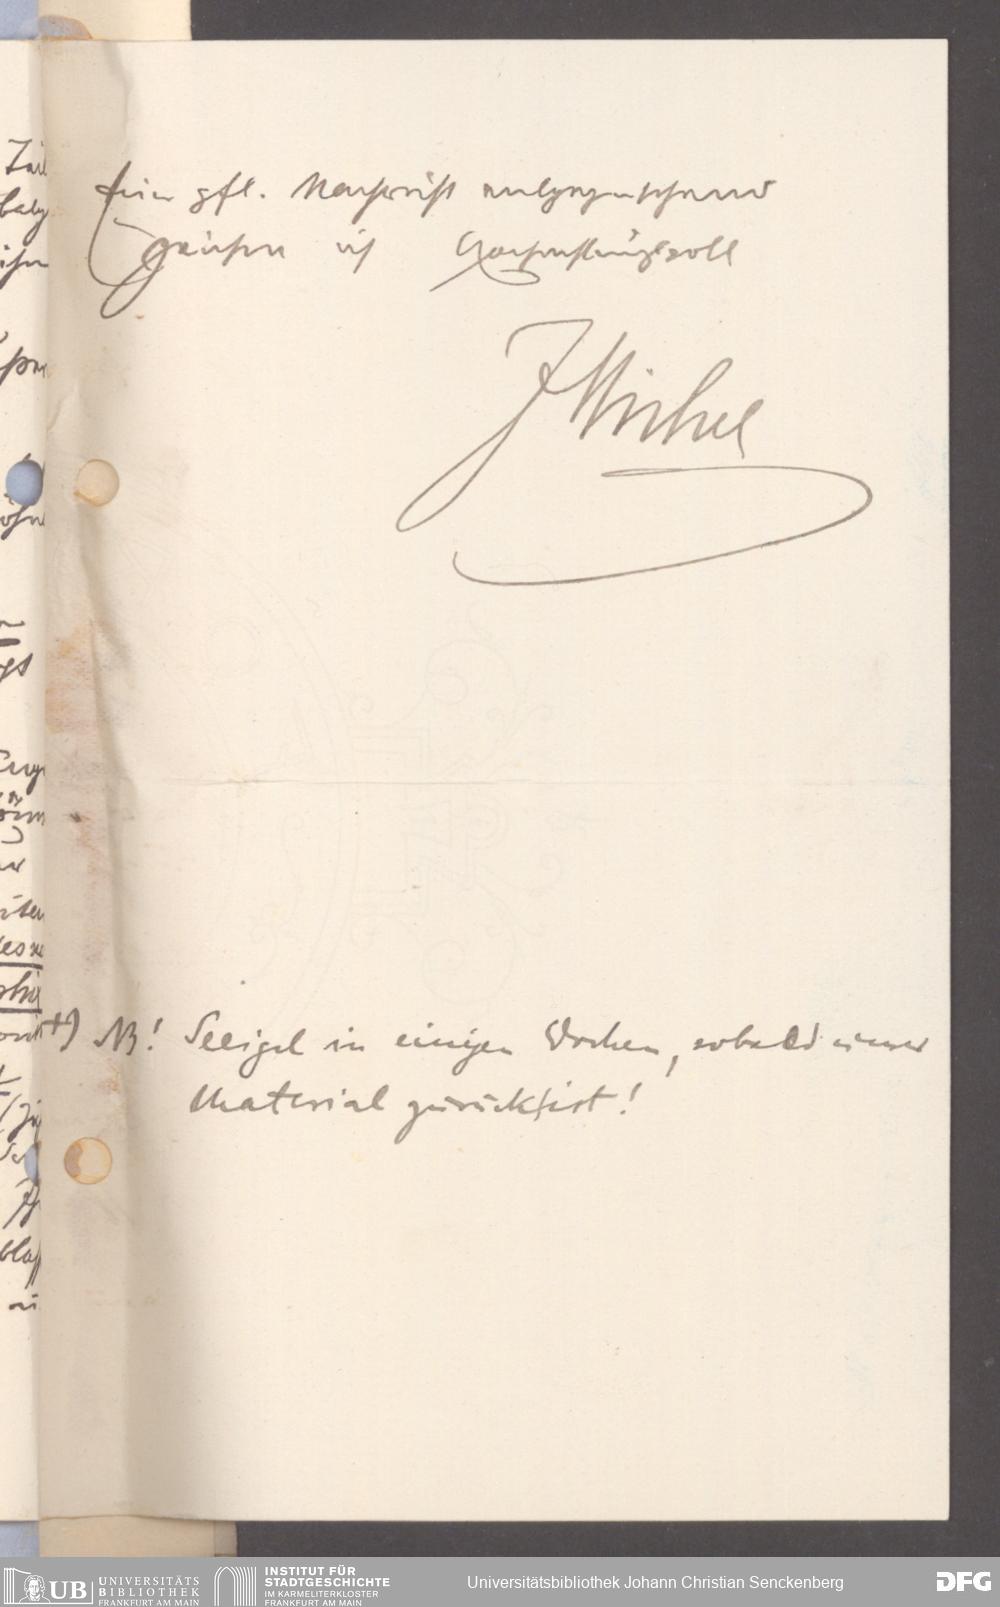 Einer gfl. Nachricht entgegensehend
zeichne ich Hochachtungsvoll
J Michel
+) NB! Seeigel in einigen Wochen, sobald unser
Material zurück ist!
UB UNIVERSITÄTS
BIBLIOTHEK
FRANKFURT AM MAIN
INSTITUT FÜR
STADTGESCHICHTE
IM KARMELITERKLOSTER
FRANKFURT AM MAIN
Universitätsbibliothek Johann Christian Senckenberg
DFG